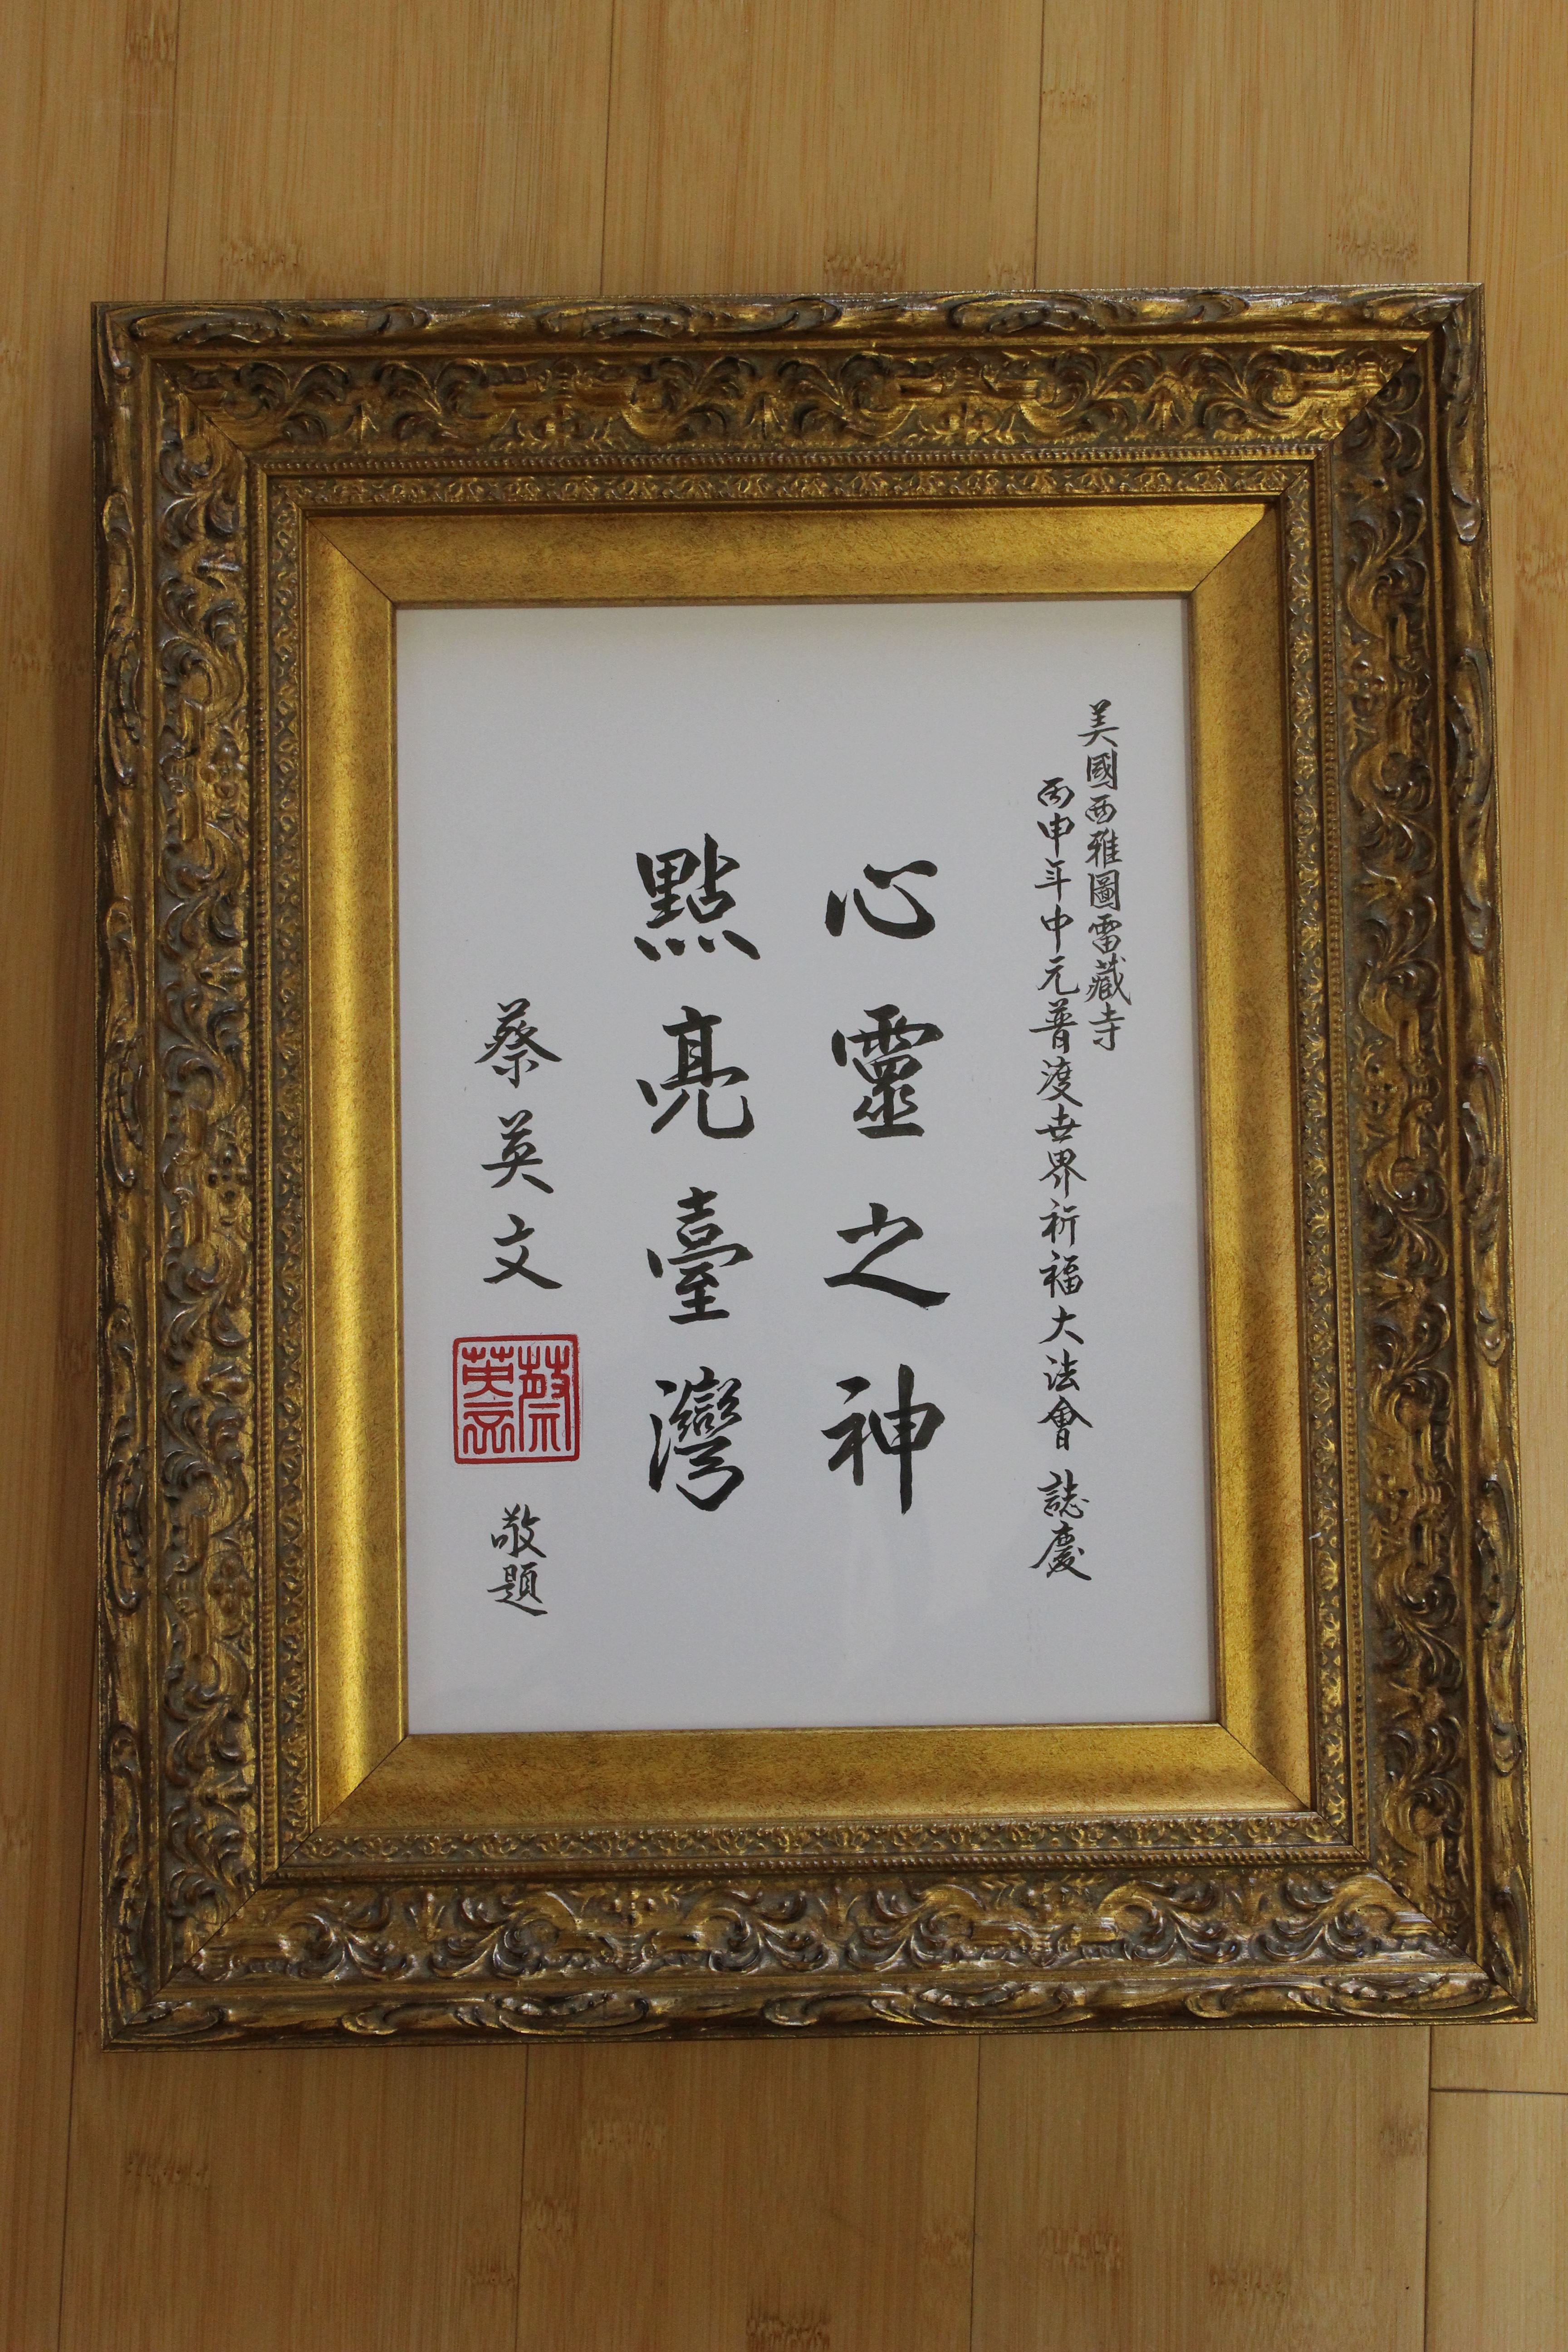 美國西雅圖雷藏寺
丙申年中元普渡世界祈福大法會 誌慶
心靈之神
點亮臺灣
蔡英文
蔡英文
敬題